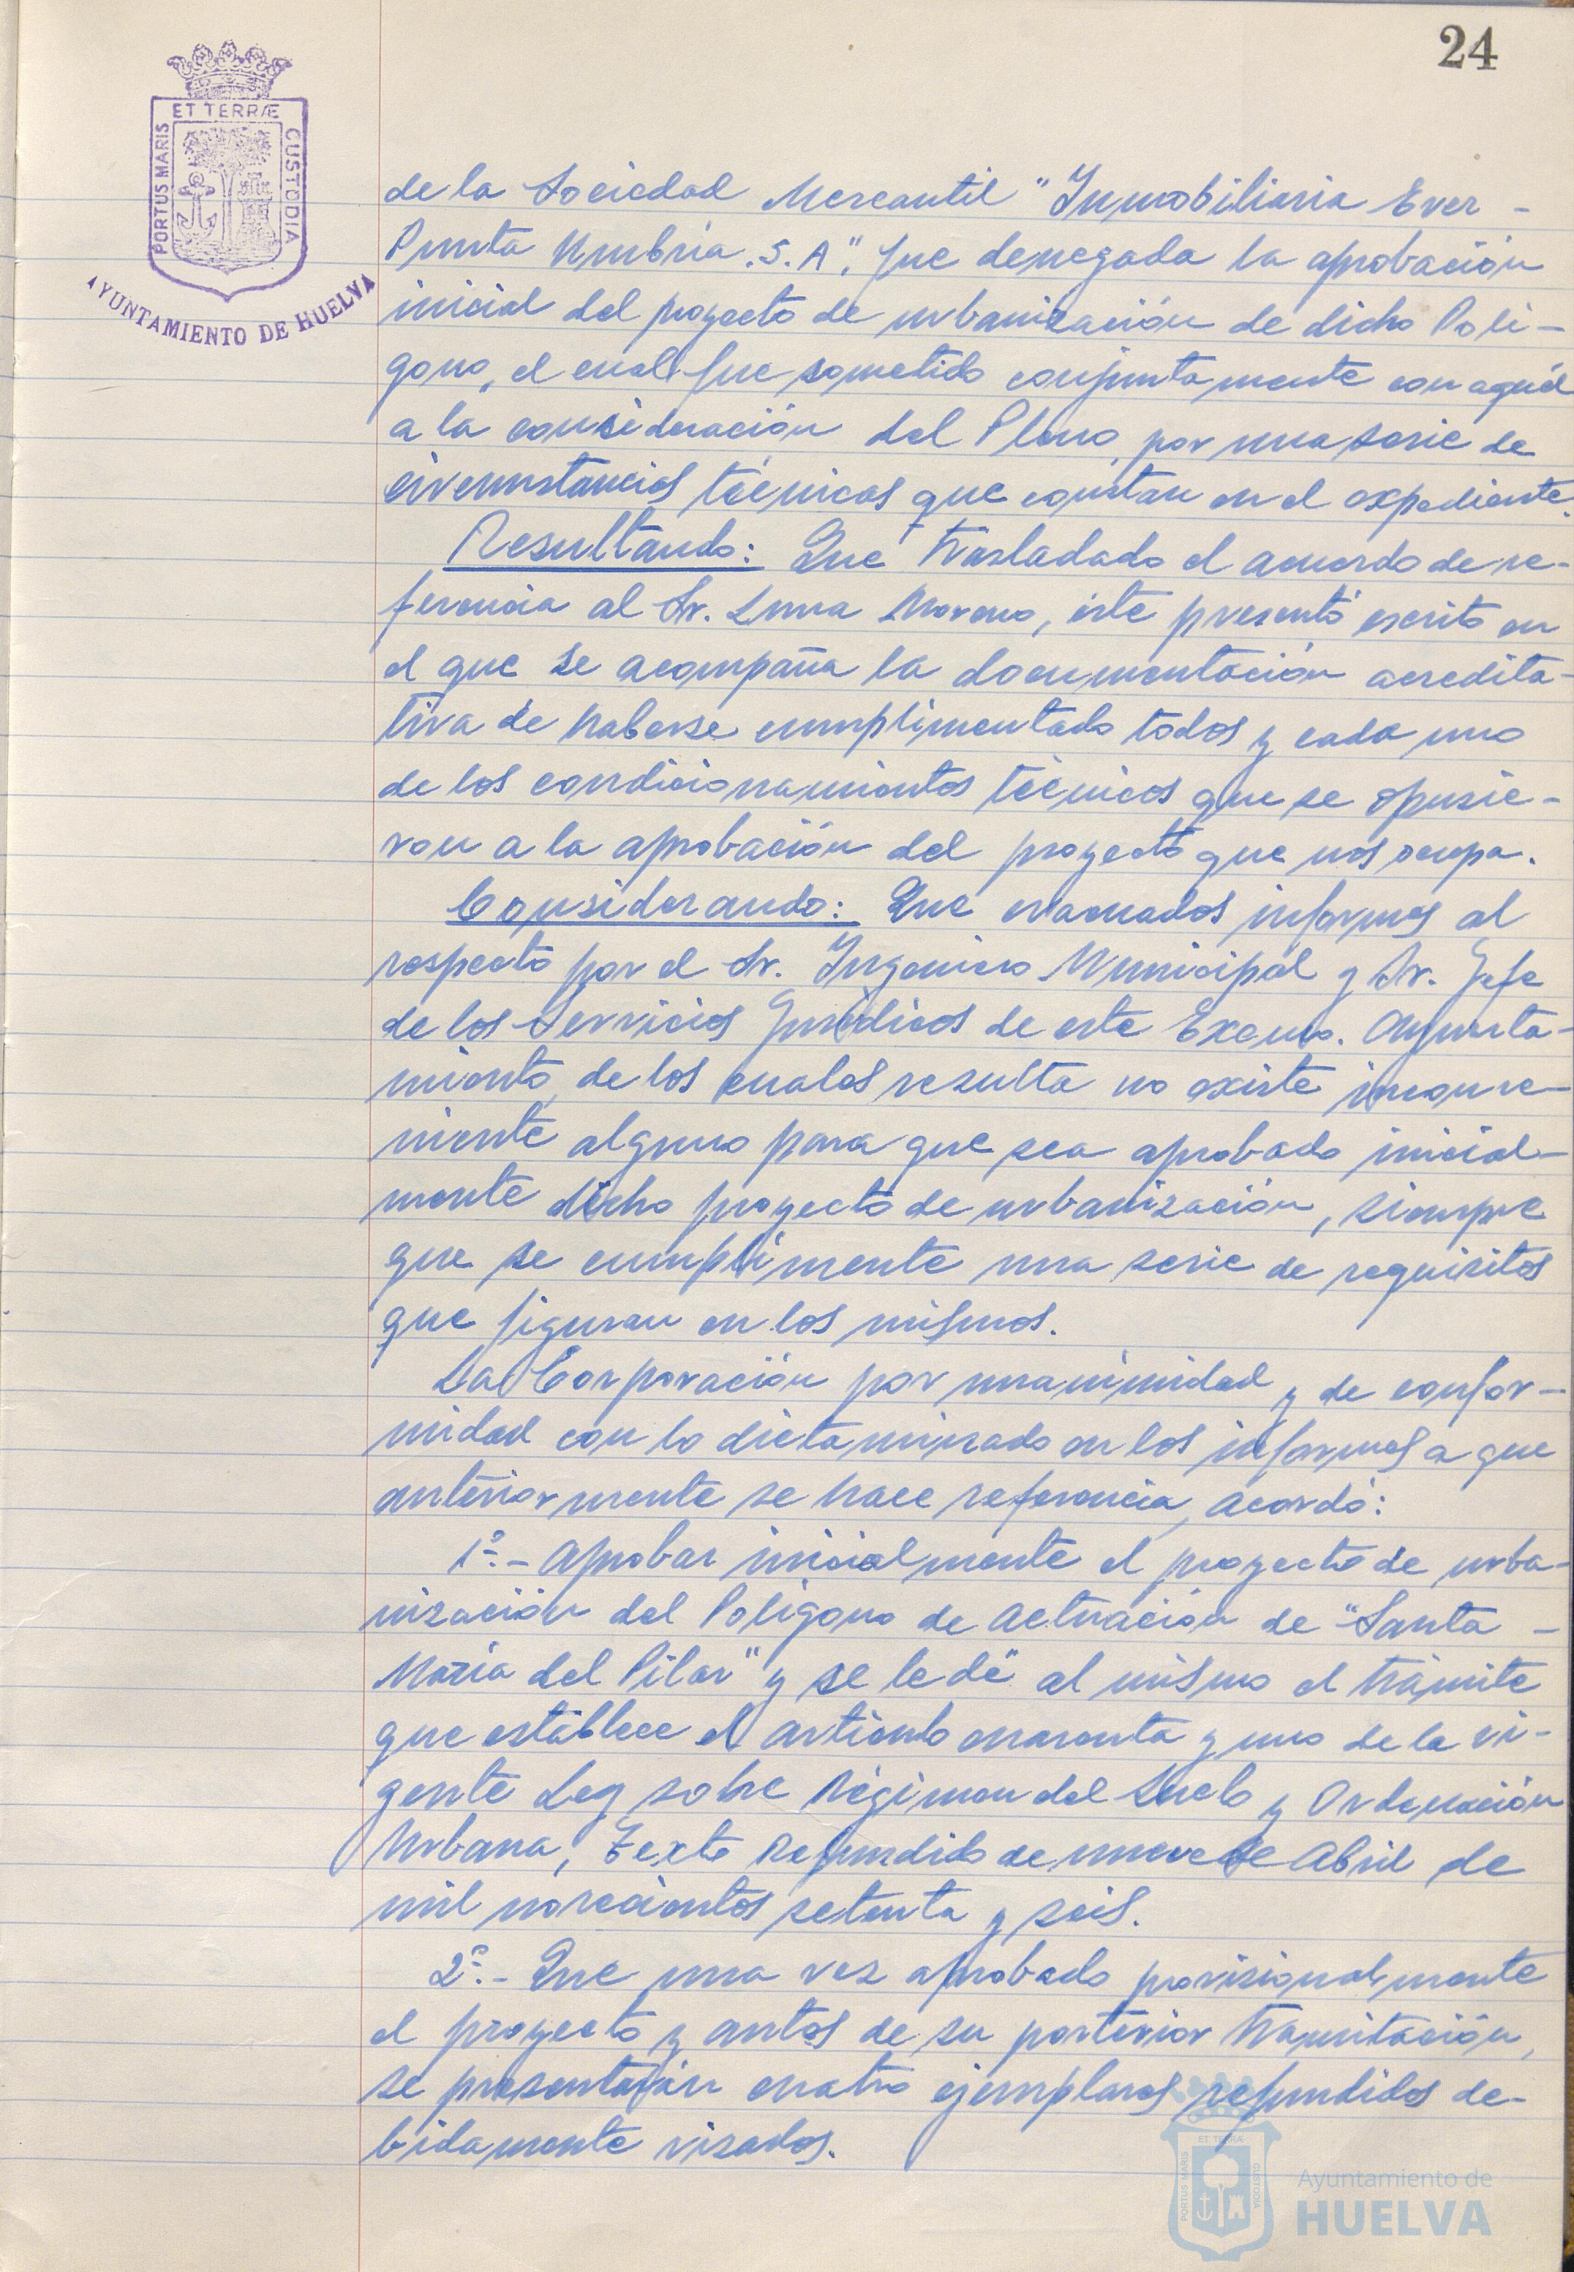 24
ET TERRÆ
PORTUS MARIS
CUSTODIA
AYUNTAMIENTO DE HUELVA
de la Sociedad Mercantil "Inmobiliaria Ever -
Punta Umbría. S. A", fue denegada la aprobación
inicial del proyecto de urbanización de dicho Polí-
gono, el cual fue sometido conjuntamente con aquél
a la consideración del Pleno, por una serie de
circunstancias técnicas que constan en el expediente.
Resultando: Que trasladado el acuerdo de re-
ferencia al Sr. Luna Moreno, éste presentó escrito en
el que se acompaña la documentación acredita-
tiva de haberse cumplimentado todos y cada uno
de los condicionamientos técnicos que se opusie-
ron a la aprobación del proyecto que nos ocupa.
Considerando: Que evacuados informes al
respecto por el Sr. Ingeniero Municipal y Sr. Jefe
de los Servicios Jurídicos de este Excmo. Ayunta-
miento, de los cuales resulta no existe inconve-
niente alguno para que sea aprobado inicial-
mente dicho proyecto de urbanización, siempre
que se cumplimente una serie de requisitos
que figuran en los mismos.
La Corporación por unanimidad y de confor-
midad con lo dictaminado en los informes a que
anteriormente se hace referencia, acordó:
1º.- Aprobar inicialmente el proyecto de urba-
nización del Polígono de Actuación de "Santa -
María del Pilar" y se le dé al mismo el trámite
que establece el artículo cuarenta y uno de la vi-
gente Ley sobre Régimen del Suelo y Ordenación
Urbana, Texto Refundido de nueve de Abril de
mil novecientos setenta y seis.
2º.- Que una vez aprobado provisionalmente
el proyecto y antes de su posterior tramitación,
se presentarán cuatro ejemplares refundidos de-
bidamente visados.
ET TERRÆ
PORTUS MARIS
CUSTODIA
Ayuntamiento de
HUELVA